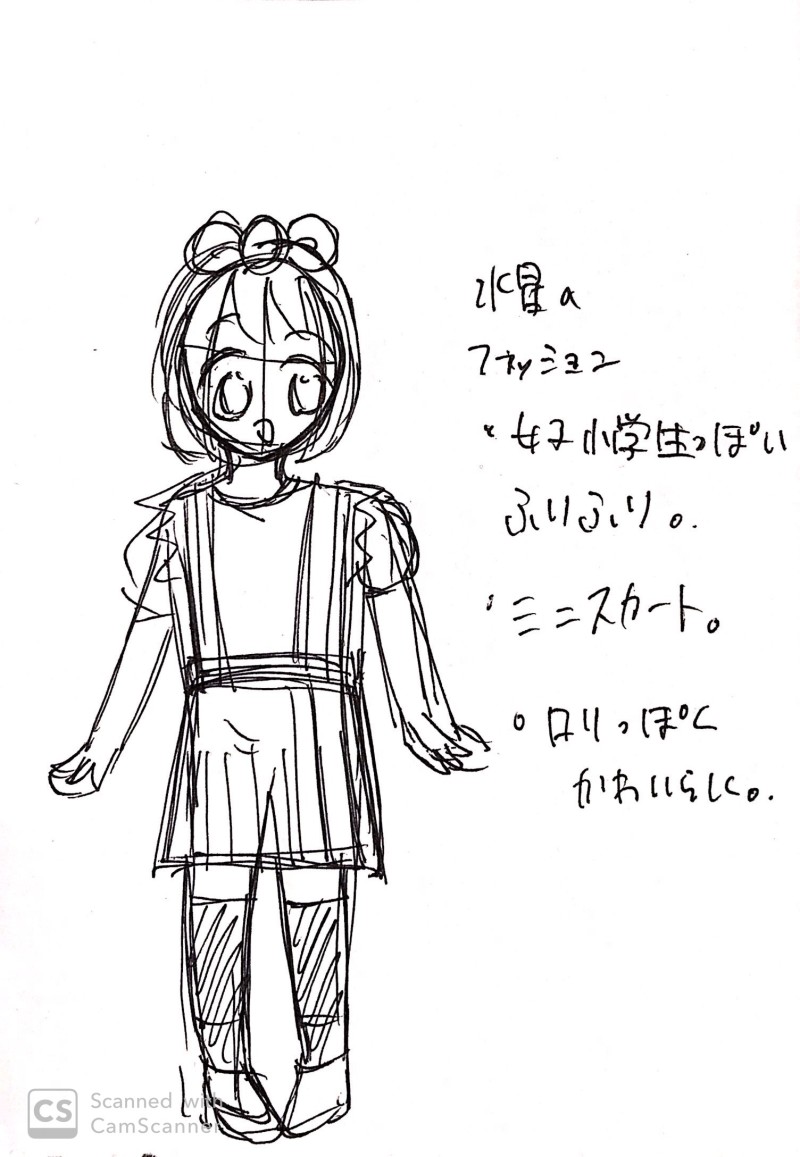 水星の
ファッション
・女子小学生っぽい
ふりふり。
・ミニスカート。
・ロリっぽく
かわいらしく。
CS Scanned with
CamScanner